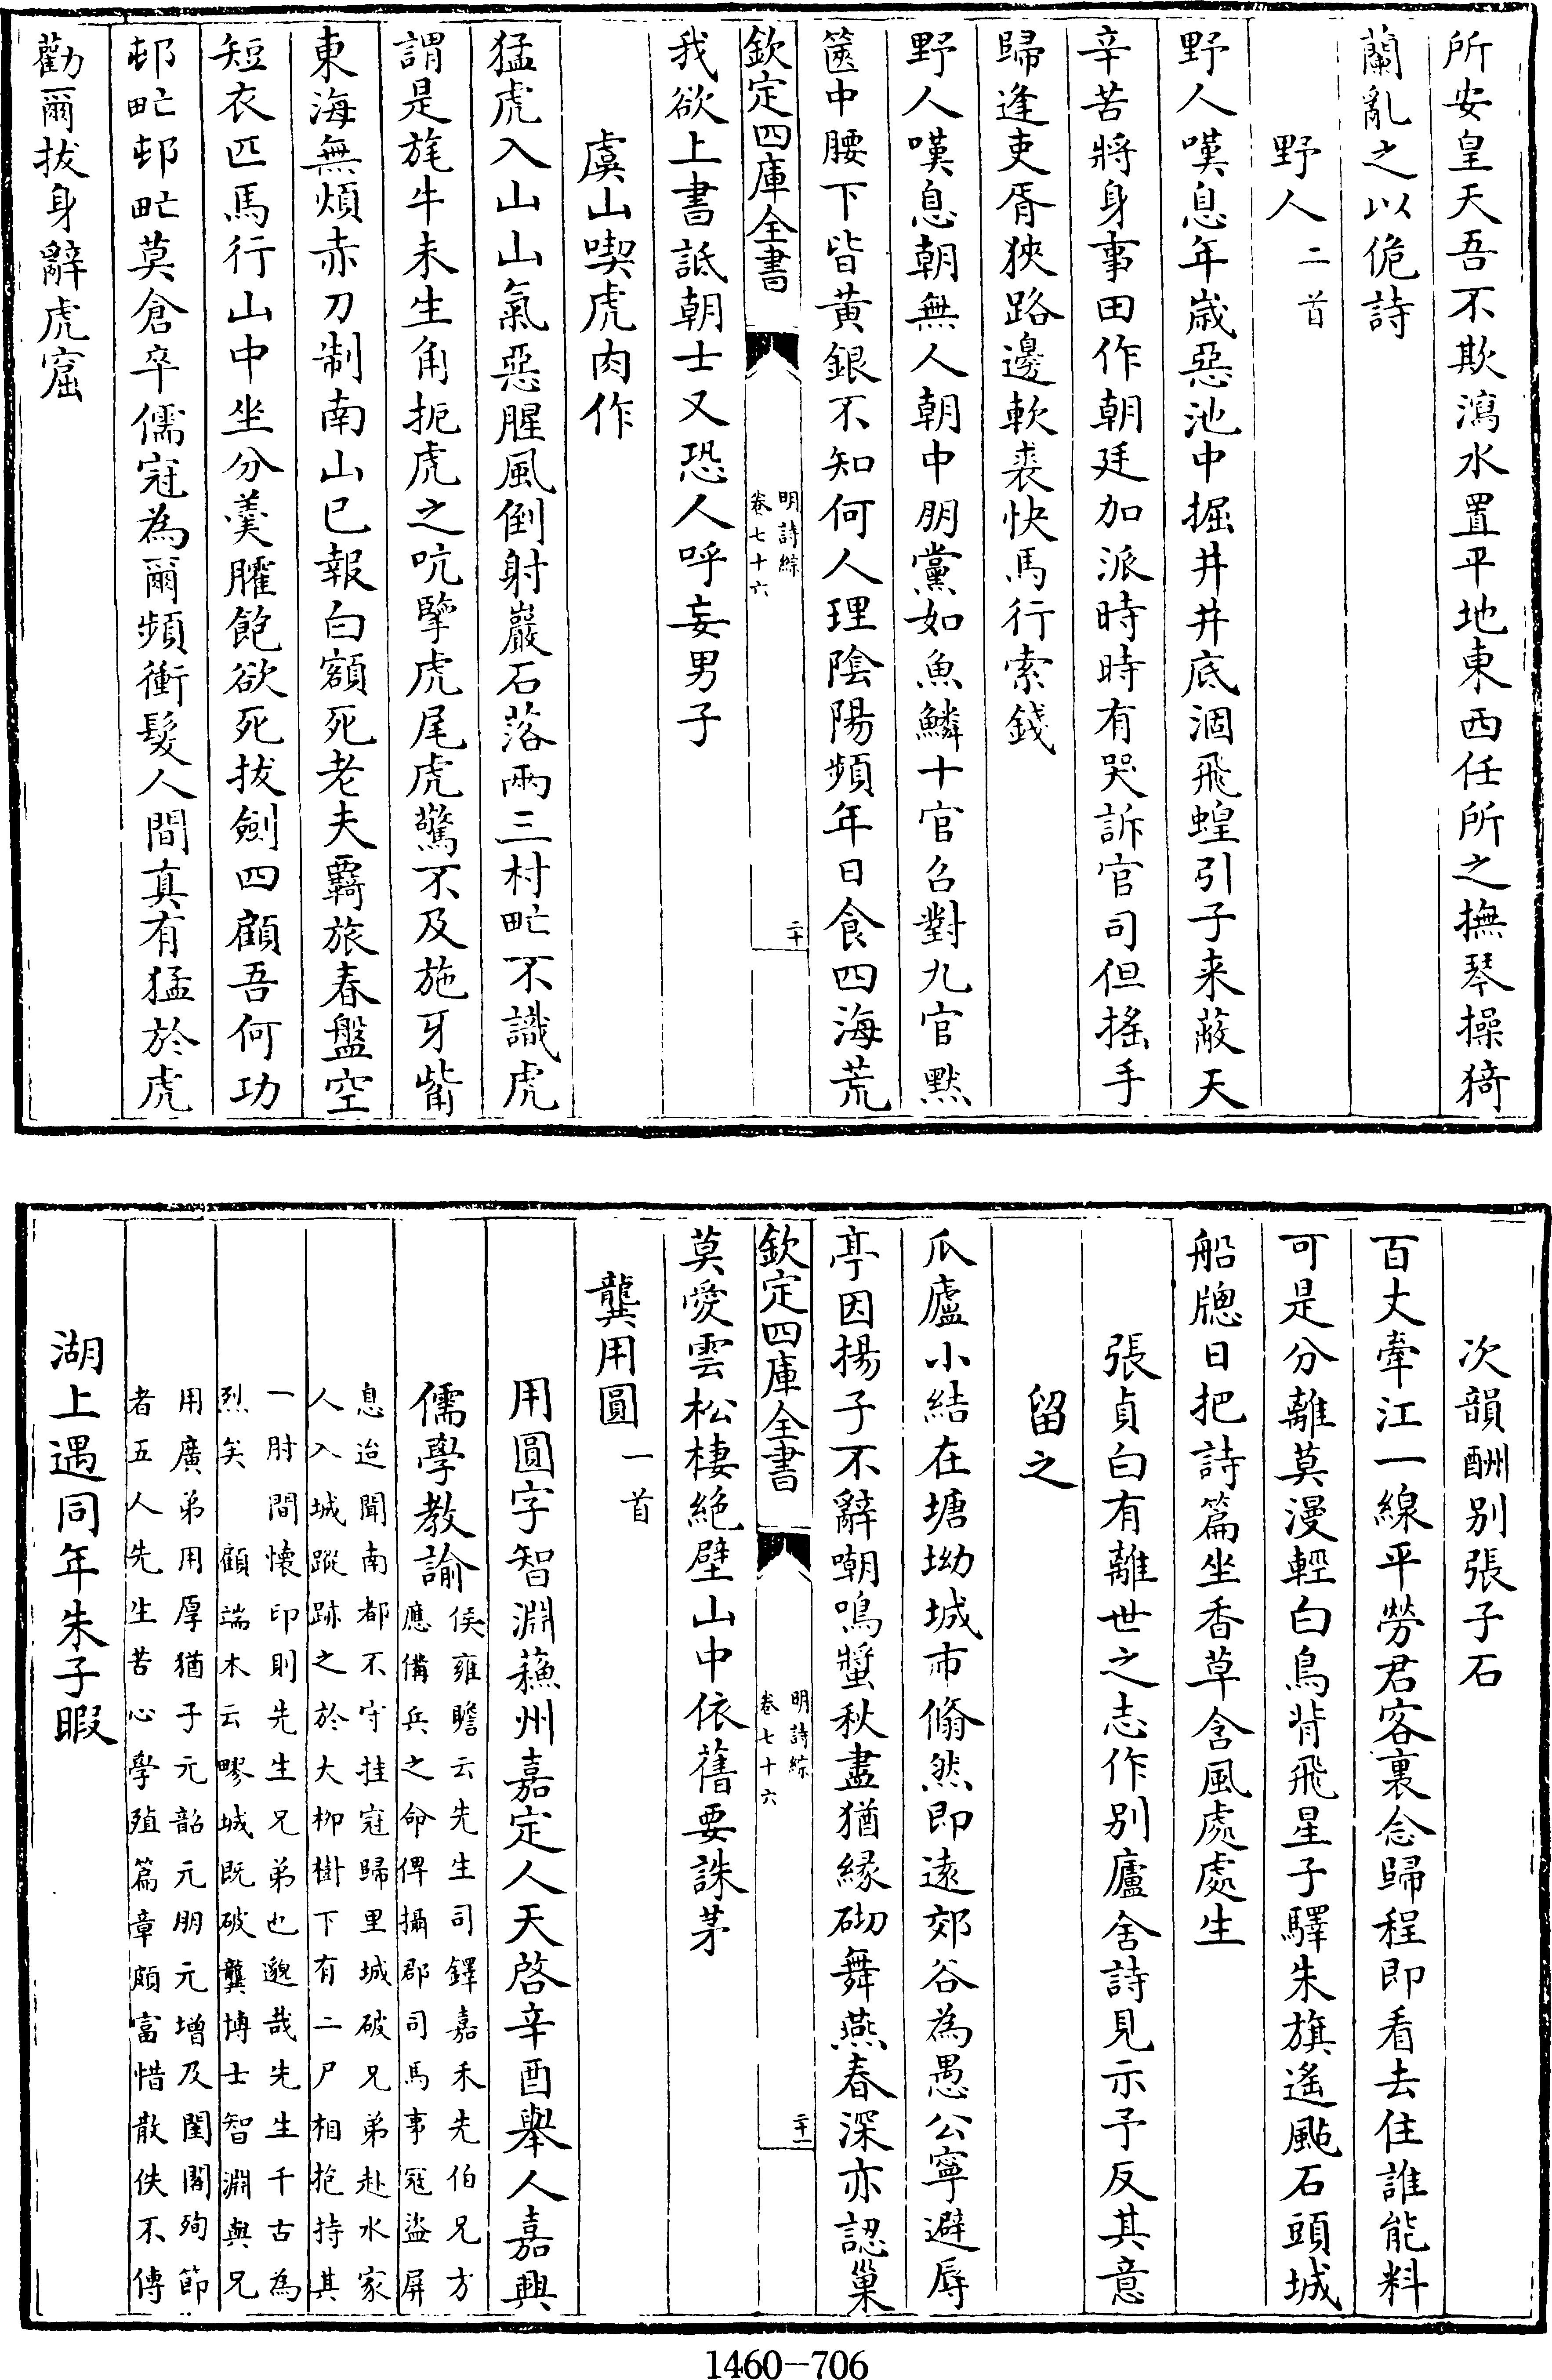 所安皇天吾不欺瀉水置平地東西任所之撫琴操猗
蘭亂之以佹詩
野人二首
野人嘆息年歲惡池中掘井井底涸飛蝗引子来蔽天
辛苦將身事田作朝廷加派時時有哭訴官司但搖手
歸逢吏胥狹路邊軟裘快馬行索錢
野人嘆息朝無人朝中朋黨如魚鱗十官召對九官默
篋中腰下皆黃銀不知何人理陰陽頻年日食四海荒
欽定四庫全書
明詩綜
卷七十六
二十
我欲上書詆朝士又恐人呼妄男子
虞山喫虎肉作
猛虎入山山氣惡腥風倒射巖石落兩三村甿不識虎
謂是旄牛未生角扼虎之吭擥虎尾虎驚不及施牙觜
東海無煩赤刀制南山已報白額死老夫覊旅春盤空
短衣匹馬行山中坐分羹臛飽欲死拔劍四顧吾何功
邨甿邨甿莫倉卒儒冠為爾頻衝髮人間真有猛於虎
勸爾拔身辭虎窟
次韻酬别張子石
百丈牽江一線平勞君客裏念歸程即看去住誰能料
可是分離莫漫輕白鳥背飛星子驛朱旗遙颭石頭城
船牕日把詩篇坐香草含風處處生
張貞白有離世之志作别廬舍詩見示予反其意
留之
瓜廬小結在塘坳城市翛然即遠郊谷為愚公寧避辱
亭因揚子不辭嘲鳴螿秋盡猶緣砌舞燕春深亦認巢
欽定四庫全書
明詩綜
卷七十六
二十一
莫愛雲松棲絕壁山中依舊要誅茅
龔用圓一首
用圓字智淵蘓州嘉定人天啓辛酉舉人嘉興
儒學教諭侯雍瞻云先生司鐸嘉禾先伯兄方
應備兵之命俾攝郡司馬事冦盜屏
息迨聞南都不守挂冠歸里城破兄弟赴水家
人入城蹤跡之於大柳樹下有二尸相抱持其
一肘間懷印則先生兄弟也邈哉先生千古為
烈矣 顧端木云疁城既破龔博士智淵與兄
用廣弟用厚猶子元韶元朋元增及閨閣殉節
者五人先生苦心學殖篇章頗富惜散佚不傳
湖上遇同年朱子暇
1460-706